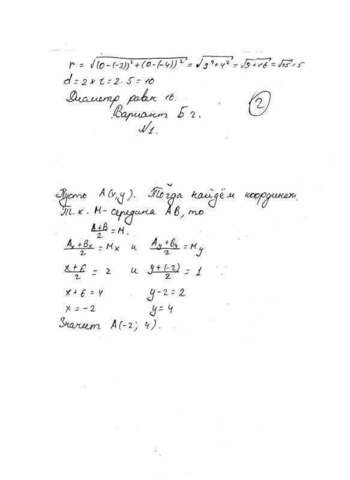 r = √(0-(-3))²+(0-(-4))² = √3²+4² = √9+16 = √25 = 5
d = 2×r = 2·5 = 10
Диаметр равен 10.
2
Вариант Б 2.
№1.
Пусть A(x,y). Тогда найдём координ
т.к. M - середина AB, то
A+B/2 = M.
Ax+Bx/2 = Mx и Ay+By/2 = My
x+6/2 = 2 и y+(-2)/2 = 1
x+6=4 y-2=2
x=-2 y=4
Значит A(-2; 4).